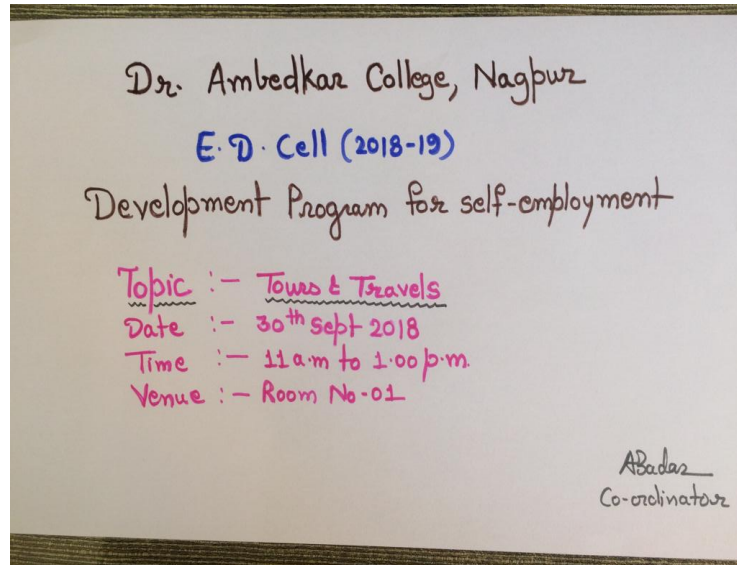 Dr. Ambedkar College, Nagpur
E.D. Cell (2018-19)
Development Program for self-employment
Topic :- Tours & Travels
Date :- 30th Sept 2018
Time :- 11 a.m to 1.00 p.m.
Venue :- Room No-01
ABadar
Co-ordinator